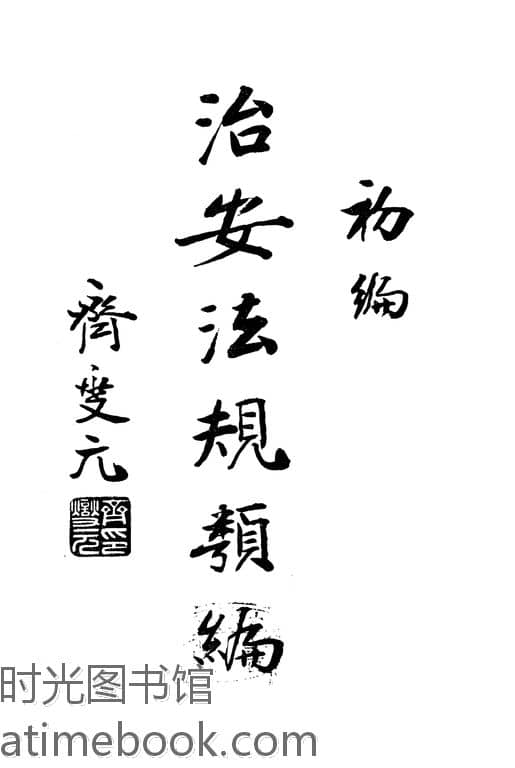 初編
治安法規類編
齊燮元
齊燮元印
时光图书馆
atimebook.com